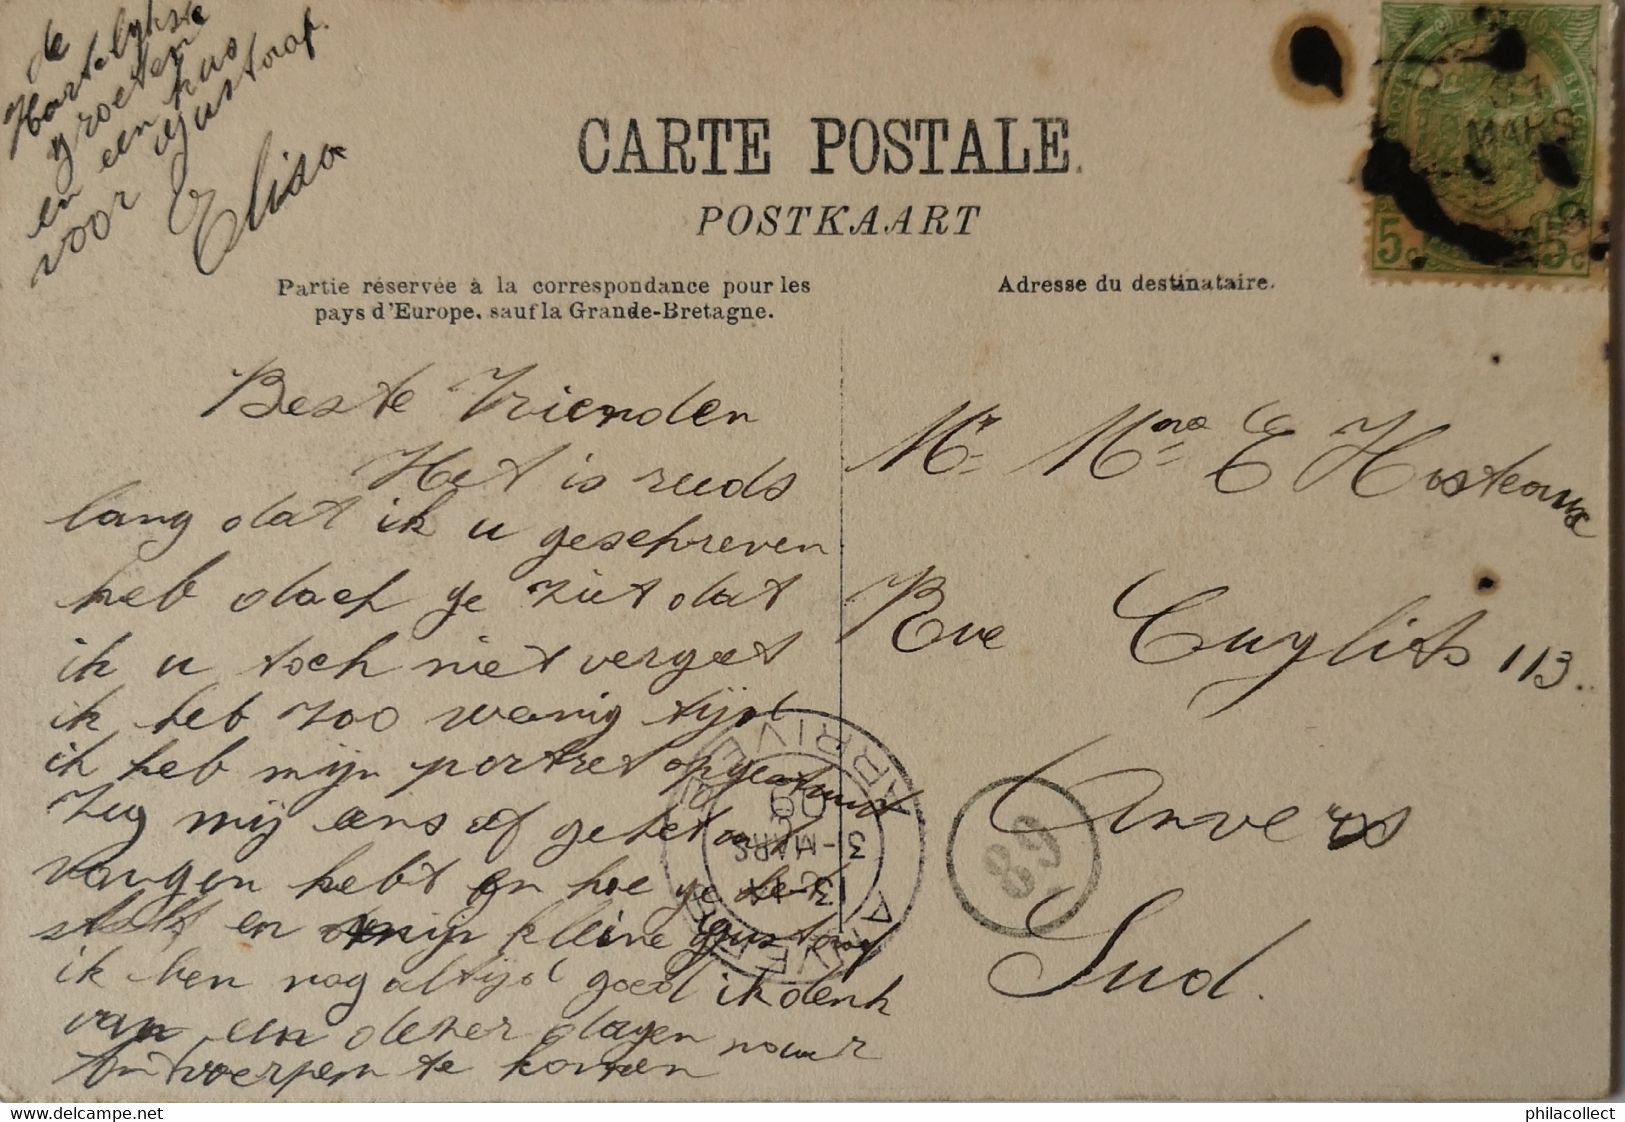 de
Hartelijkste
groeten
en een kus
voor Gustoaf.
Elisa
CARTE POSTALE.
POSTKAART
Partie réservée à la correspondance pour les
pays d'Europe, sauf la Grande-Bretagne.
Adresse du destinataire.
MARS
5c 5c
Beste Vrienden
Het is reeds
lang dat ik u geschreven
heb doch ge ziet dat
ik u toch niet vergeet
ik heb zoo wenig tijd
ik heb mijn portret
zeg mij eens of ge het
vangen hebt en hoe ge het
stelt en mijn kleine Gustoaf
ik ben nog altijd goed ik denk
van een dezer dagen naar
Antwerpen te komen
Mr. Mme. E Hosteaux
Rue Cuylits 113.
Anvers
Sud.
ANVERS
ARRIVEE
3 - MARS
09
89
philacollect